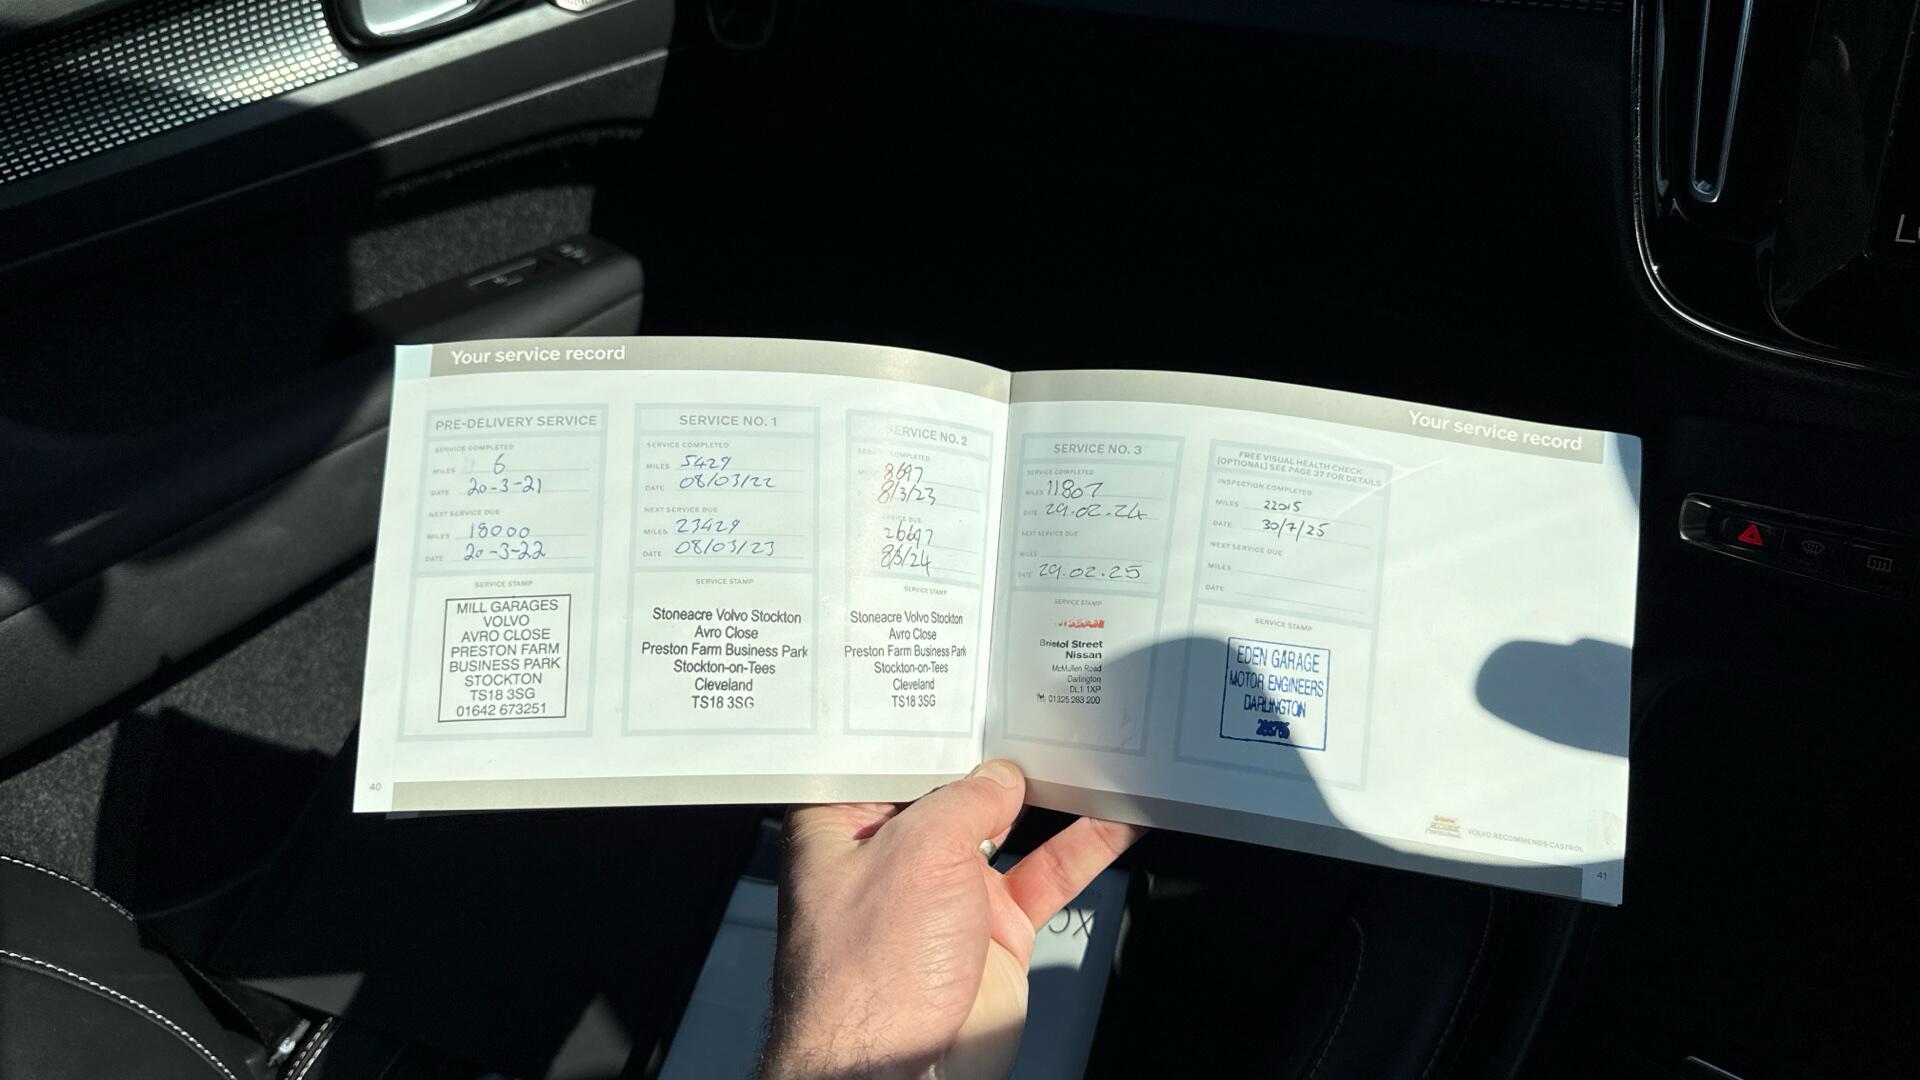 Your service record
PRE-DELIVERY SERVICE
SERVICE COMPLETED
MILES 6
DATE 20-3-21
NEXT SERVICE DUE
MILES 18000
DATE 20-3-22
SERVICE STAMP
MILL GARAGES
VOLVO
AVRO CLOSE
PRESTON FARM
BUSINESS PARK
STOCKTON
TS18 3SG
01642 673251
40
SERVICE NO. 1
SERVICE COMPLETED
MILES 5429
DATE 08/03/22
NEXT SERVICE DUE
MILES 23429
DATE 08/03/23
SERVICE STAMP
Stoneacre Volvo Stockton
Avro Close
Preston Farm Business Park
Stockton-on-Tees
Cleveland
TS18 3SG
SERVICE NO. 2
COMPLETED
8697
8/3/23
DUE
26697
8/3/24
SERVICE STAMP
Stoneacre Volvo Stockton
Avro Close
Preston Farm Business Park
Stockton-on-Tees
Cleveland
TS18 3SG
Your service record
SERVICE NO. 3
SERVICE COMPLETED
MILES 11807
DATE 29.02.24
NEXT SERVICE DUE
MILES
DATE 29.02.25
SERVICE STAMP
NISSAN
Bristol Street
Nissan
McMullen Road
Darlington
DL1 1XP
Tel: 01325 283 200
FREE VISUAL HEALTH CHECK
(OPTIONAL) SEE PAGE 37 FOR DETAILS
INSPECTION COMPLETED
MILES 22015
DATE 30/7/25
NEXT SERVICE DUE
MILES
DATE
SERVICE STAMP
EDEN GARAGE
MOTOR ENGINEERS
DARLINGTON
VOLVO RECOMMENDS CASTROL
41
XC